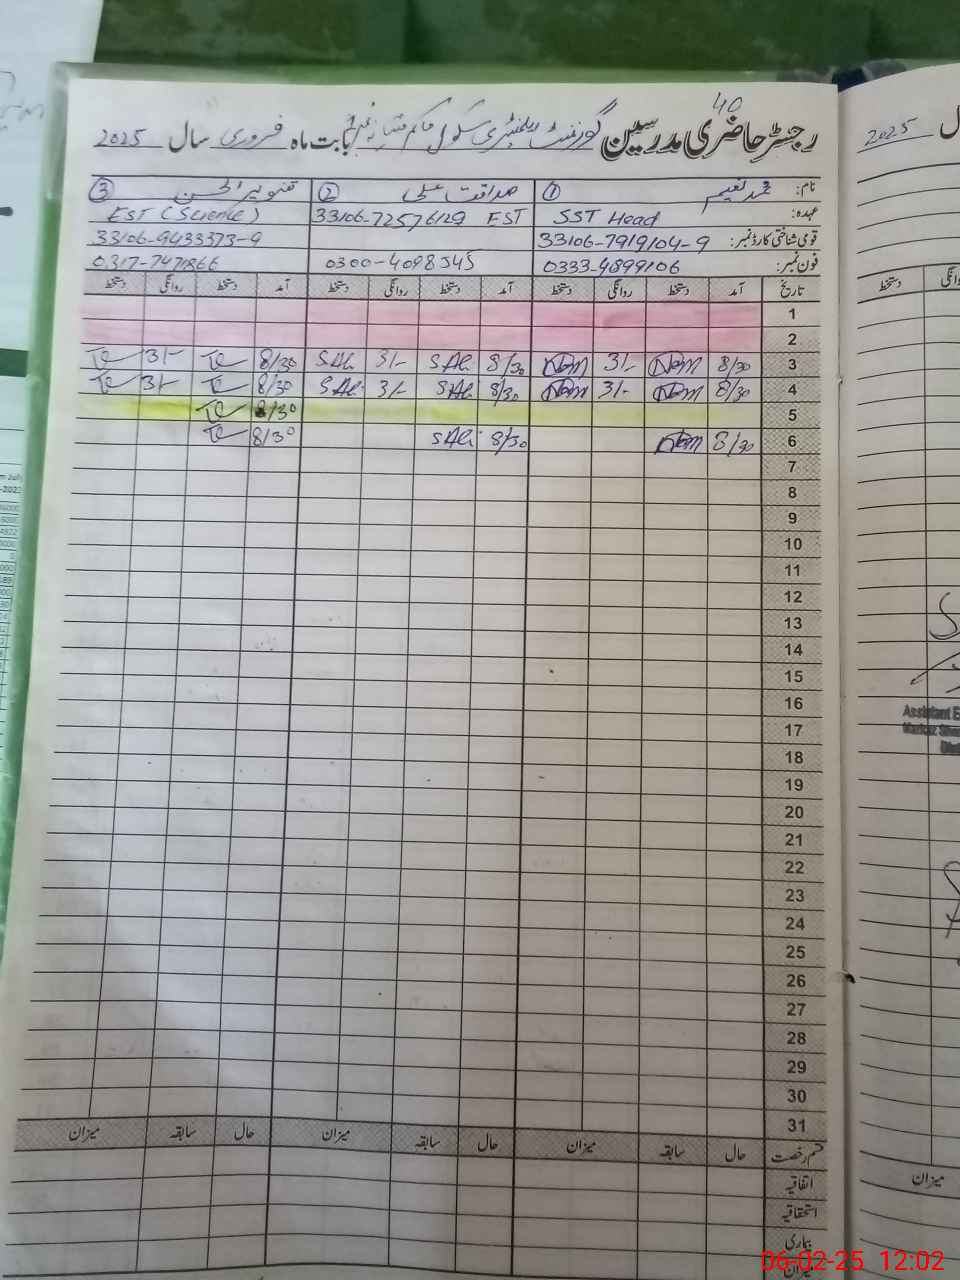 40
رجسٹر حاضری مدرسین گورنمنٹ ایلیمنٹری سکول بابت ماہ فروری سال 2025
نام: محمد نعیم ① صداقت علی ② تنویر الحسن ③
عہدہ: SST Head EST EST (Science)
قومی شناختی کارڈ نمبر: 33106-7919104-9 33106-72576129 33106-9433373-9
فون نمبر: 0333-4899106 0300-4098545 0317-7471866
تاریخ آمد دستخط روانگی دستخط آمد دستخط روانگی دستخط آمد دستخط روانگی دستخط
1
2
3 8/30 3/- 8/30 SAli 3/- SAli 8/30 3/-
4 8/30 3/- 8/30 SAli 3/- SAli 8/30 3/-
5 8/30
6 8/30 8/30 SAli 8/30
7
8
9
10
11
12
13
14
15
16
17
18
19
20
21
22
23
24
25
26
27
28
29
30
31
قسم رخصت حال سابقہ میزان حال سابقہ میزان حال سابقہ میزان
اتفاقیہ
استحقاقیہ
بیماری
میزان
2025
دستخط
Assistant E
میزان
06-02-25 12:02